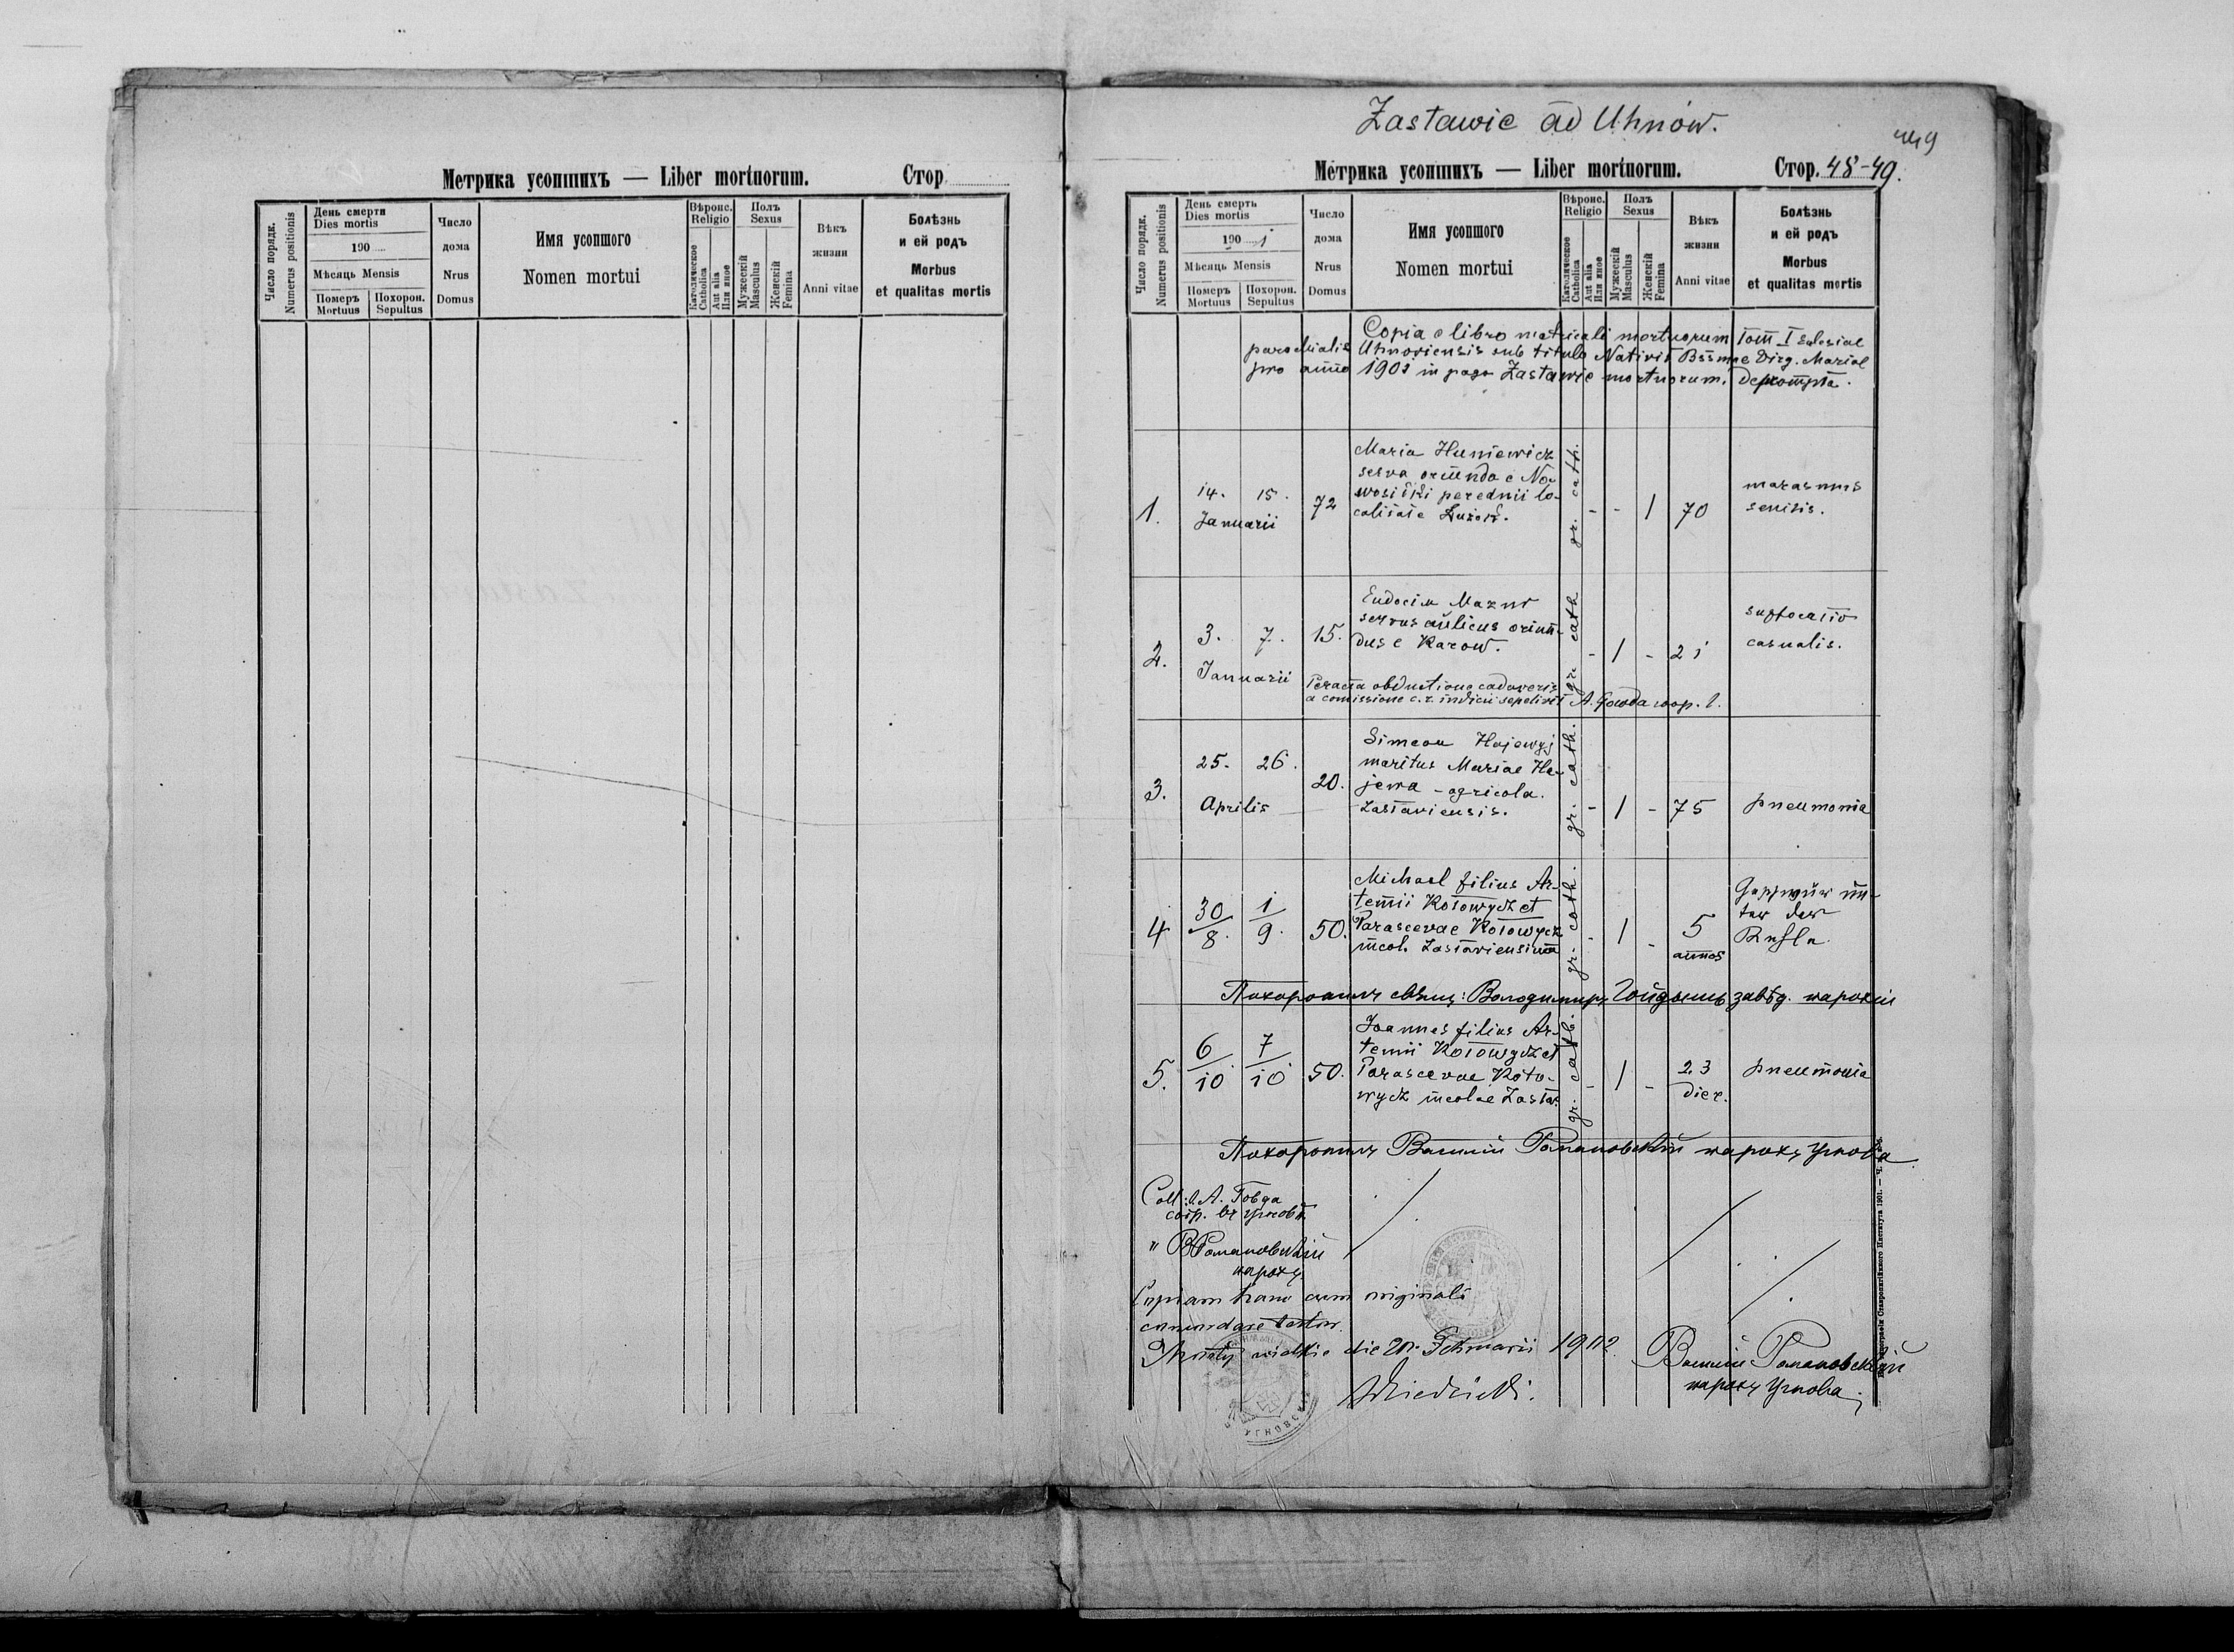 Метрика усопшихъ — Liber mortuorum. Стор.
Число порядк.
Numerus positionis
День смерти
Dies mortis
190
Мѣсяць Mensis
Померъ
Mortuus
Похорон.
Sepultus
Число
дома
Nrus
Domus
Имя усопшого
Nomen mortui
Вѣроис.
Religio
Католическое
Catholica
Aut alia
Или иное
Полъ
Sexus
Мужескій
Masculus
Женскій
Femina
Вѣкъ
жизни
Anni vitae
Болѣзнь
и ей родъ
Morbus
et qualitas mortis
Zastawie ad Uhnów.
Метрика усопшихъ — Liber mortuorum. Стор. 48-49.
Число порядк.
Numerus positionis
День смерть
Dies mortis
190 1
Мѣсяць Mensis
Померъ
Mortuus
Похорон.
Sepultus
Число
дома
Nrus
Domus
Имя усопшого
Nomen mortui
Вѣроис.
Religio
Католическое
Catholica
Aut alia
Или иное
Полъ
Sexus
Мужескій
Masculus
Женскій
Femina
Вѣкъ
жизни
Anni vitae
Болѣзнь
и ей родъ
Morbus
et qualitas mortis
Copia e libro metricali mortuorum Tom I eclesiae
parochialis Uhnoviensis sub titulo Nativit Bssmae Virg. Mariae
pro anno 1901 in pago Zastawie mortuorum. Deprompta.
1. 14. 15. Januarii 72
Maria Huniewicz
serva oriunda e No-
wosiłki perednii lo-
calitate
gr. cath. - - 1 70
marasmus
senilis.
2. 3. 7. Januarii 15.
Eudocim Mazur
servus aulicus oriun-
dus e Karow.
gr. cath - 1 - 21
suffocatio
casualis.
Peracta obductione cadaveris
a comissione c.r. iudicii sepelivit A. Gowda
3. 25. 26. Aprilis 20.
Simeon Hajewyj
maritus Mariae Ha-
jewa - agricola.
Zastaviensis.
gr. cath. - 1 - 75 pneumonia
4 30/8. 1/9. 50.
Michael filius Ar-
temii Kotowycz et
Parascevae Kotowycz
incol. Zastaviensium
gr. cath. - 1 - 5
annos
Похоронилъ Володимиръ завѣд. парохіи
5. 6/10. 7/10. 50.
Joannes filius Ar-
temii Kotowycz et
Parascevae Koto-
wycz incolae Zastav.
gr. cath. - 1 - 23
dier.
pneumonia
Похоронилъ Василій Романовскій парохъ Угнова
Coll: А. Говда
сотр. въ Угновѣ
" В Романовскій
парохъ
Copiam hanc cum originali
concordare testor.
wielkie die 20. Februarii 1902.
Василій Романовскій
парохъ Угнова